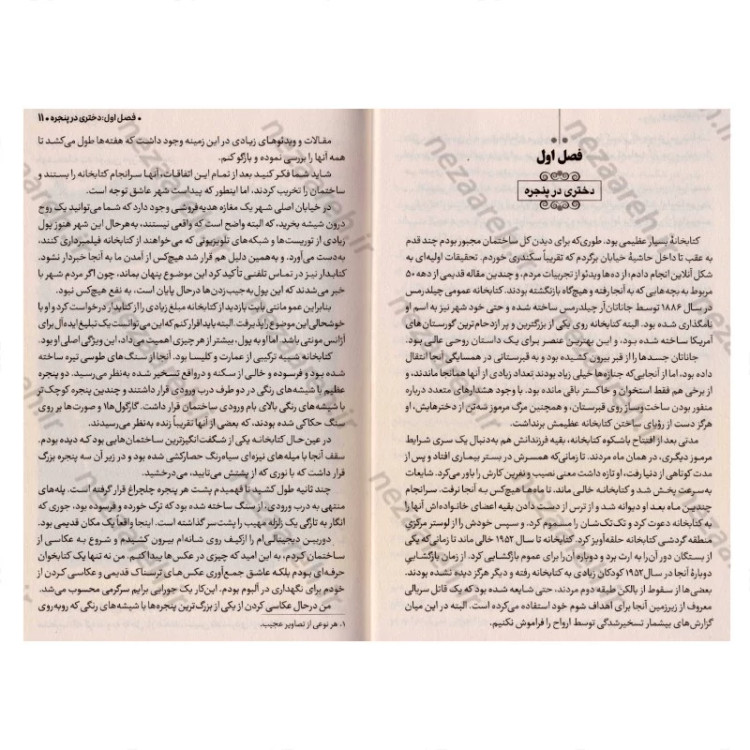 فصل اول
دختری در پنجره
کتابخانهٔ بسیار عظیمی بود. طوری‌که برای دیدن کل ساختمان مجبور بودم چند قدم
به عقب تا داخل حاشیهٔ خیابان برگردم که تقریباً سکندری خوردم. تحقیقات اولیه‌ای به
شکل آنلاین انجام دادم؛ از ده‌ها ویدئو از تجربیات مردم، و چندین مقاله قدیمی از دهه ۵۰
مربوط به بچه هایی که به آنجا رفته و هیچ‌گاه بازنگشته بودند. کتابخانه عمومی چیلدرمس
در سال ۱۸۸۶ توسط جاناتان‌آر چیلدرمس ساخته شده و حتی خود شهر نیز به اسم او
نامگذاری شده بود. البته کتابخانه روی یکی از بزرگترین و پر ازدحام‌ترین گورستان های
آمریکا ساخته شده بود، و این بهترین عنصر برای یک داستان روحی عالی بود.
جاناتان جسدها را از قبر بیرون کشیده بود و به قبرستانی در همسایگی آنجا انتقال
داده بود، اما از آنجایی‌که جنازه‌ها خیلی زیاد بودند تعداد زیادی از آنها همانجا ماندند، و
از برخی هم فقط استخوان و خاکستر باقی مانده بود. با وجود هشدارهای متعدد درباره
منفور بودن ساخت‌وساز روی قبرستان، و همچنین مرگ مرموز شه‌تن از دخترهایش، او
هرگز دست از رؤیای ساختن کتابخانه عظیمش برنداشت.
مدتی بعد از افتتاح باشکوه کتابخانه، بقیه فرزندانش هم به‌دنبال یک سری شرایط
مرموز دیگری، در همان ماه مردند. تا زمانی‌که همسرش در بستر بیماری افتاد و پس از
مدت کوتاهی از دنیا رفت، او تازه داشت معنی نصیب و نفرین کارش را باور می‌کرد. شایعات
به‌سرعت پخش شد و کتابخانه خالی ماند. تا ماه‌ها هیچ‌کس به آنجا نرفت. سرانجام
چندین ماه بعد او دیوانه شد و از ترس از دست دادن بقیه اعضای خانواده‌اش آنها را
به کتابخانه دعوت کرد و تک‌تک‌شان را مسموم کرد، و سپس خودش را از لوستر مرکزیِ
منطقه گردشی کتابخانه حلقه‌آویز کرد. کتابخانه تا سال ۱۹۵۲ خالی ماند تا زمانی‌که یکی
از بستگان دور آن‌را به ارث برد و دوباره آن‌را برای عموم بازگشایی کرد. از زمان بازگشایی
دوبارهٔ آنجا در سال ۱۹۵۲ کودکان زیادی به کتابخانه رفته و دیگر هرگز دیده نشده بودند.
بعضی‌ها از سقوط از بالکن طبقه دوم مردند، حتی شایعه شده بود که یک قاتل سریالی
معروف از زیرزمین آنجا برای اهداف شوم خود استفاده می‌کرده است. البته در این میان
گزارش‌های بیشمار تسخیرشدگی توسط ارواح را فراموش نکنیم.
• فصل اول: دختری در پنجره • ۱۱
مقالات و ویدئوهای زیادی در این زمینه وجود داشت که هفته‌ها طول می‌کشد تا
همه آنها را بررسی نموده و بازگو کنم.
شاید شما فکر کنید بعد از تمام این اتفاقات، آنها سرانجام کتابخانه را بستند و
ساختمان را تخریب کردند، اما اینطور که پیداست شهر عاشق توجه است.
در خیابان اصلی شهر یک مغازه هدیه‌فروشی وجود دارد که شما می‌توانید یک روح
درون شیشه بخرید، که البته واضح است که واقعی نیستند، به‌هرحال این شهر هنوز پول
زیادی از توریست‌ها و شبکه‌های تلویزیونی که می‌خواهند از کتابخانه فیلمبرداری کنند،
به‌دست می‌آورد. و به‌همین دلیل هم قرار شد هیچ‌کس از آمدن ما به آنجا خبردار نشود.
کتابدار نیز در تماس تلفنی تأکید کرد این موضوع پنهان بماند، چون اگر مردم شهر با
خبر می‌شدند که این پول‌به‌جیب‌زدن‌ها درحال پایان است، به نفع هیچ‌کس نبود.
بنابراین عمو مانتی بابت بازدید از کتابخانه مبلغ زیادی را از کتابدار درخواست کرد و او با
خوشحالی این موضوع را پذیرفت. البته باید اقرار کنم که این می‌توانست یک تبلیغ ایده‌آل برای
آژانس مونتی باشد. اما او به پول، بیشتر از هر چیزی اهمیت می‌داد، این ویژگی اصلی او بود.
کتابخانه شبیه ترکیبی از عمارت و کلیسا بود. آنجا از سنگ های طوسی تیره ساخته
شده بود و فرسوده و خالی از سکنه و درواقع تسخیر شده به‌نظر می‌رسید. دو پنجره
عظیم با شیشه‌های رنگی در دو طرف درب ورودی قرار داشتند و چندین پنجره کوچک‌تر
با شیشه‌های رنگی بالای بام ورودی ساختمان قرار داشت. گارگول‌ها۱ و صورت‌ها بر روی
سنگ حکاکی شده بودند، که بعضی از آنها تقریباً زنده به‌نظر می‌رسیدند.
در عین حال کتابخانه یکی از شگفت انگیزترین ساختمان‌هایی بود که دیده بودم.
سقف آنجا با میله‌های نیزه‌ای سیاه‌رنگ حصارکشی شده بود و در زیر آن سه پنجره بزرگ
قرار داشت که با نوری که از پشتش می‌تابید، می‌درخشید.
چند ثانیه طول کشید تا فهمیدم پشت هر پنجره چلچراغ قرار گرفته است. پله‌های
منتهی به درب ورودی، از سنگ ساخته شده بود که ترک خورده و فرسوده بود، جوری که
انگار به تازگی یک زلزله مهیب را پشت‌سر گذاشته است. اینجا واقعاً یک مکان قدیمی بود.
دوربین دیجیتالی‌ام را از کیف روی شانه‌ام بیرون کشیدم و شروع به عکاسی از
ساختمان کردم، به این امید که چیزی در عکس‌ها پیدا کنم. من نه تنها یک کتابخوان
حرفه‌ای بودم بلکه عاشق جمع‌آوری عکس‌های ترسناک قدیمی و عکاسی کردن از
خودم برای نگهداری در آلبوم بودم. این‌کار یک جورایی برایم سرگرمی محسوب می‌شد.
من درحال عکاسی کردن از یکی از بزرگ‌ترین پنجره‌ها با شیشه‌های رنگی که روبه‌روی
۱. هر نوعی از تصاویر عجیب.
nezaareh.ir